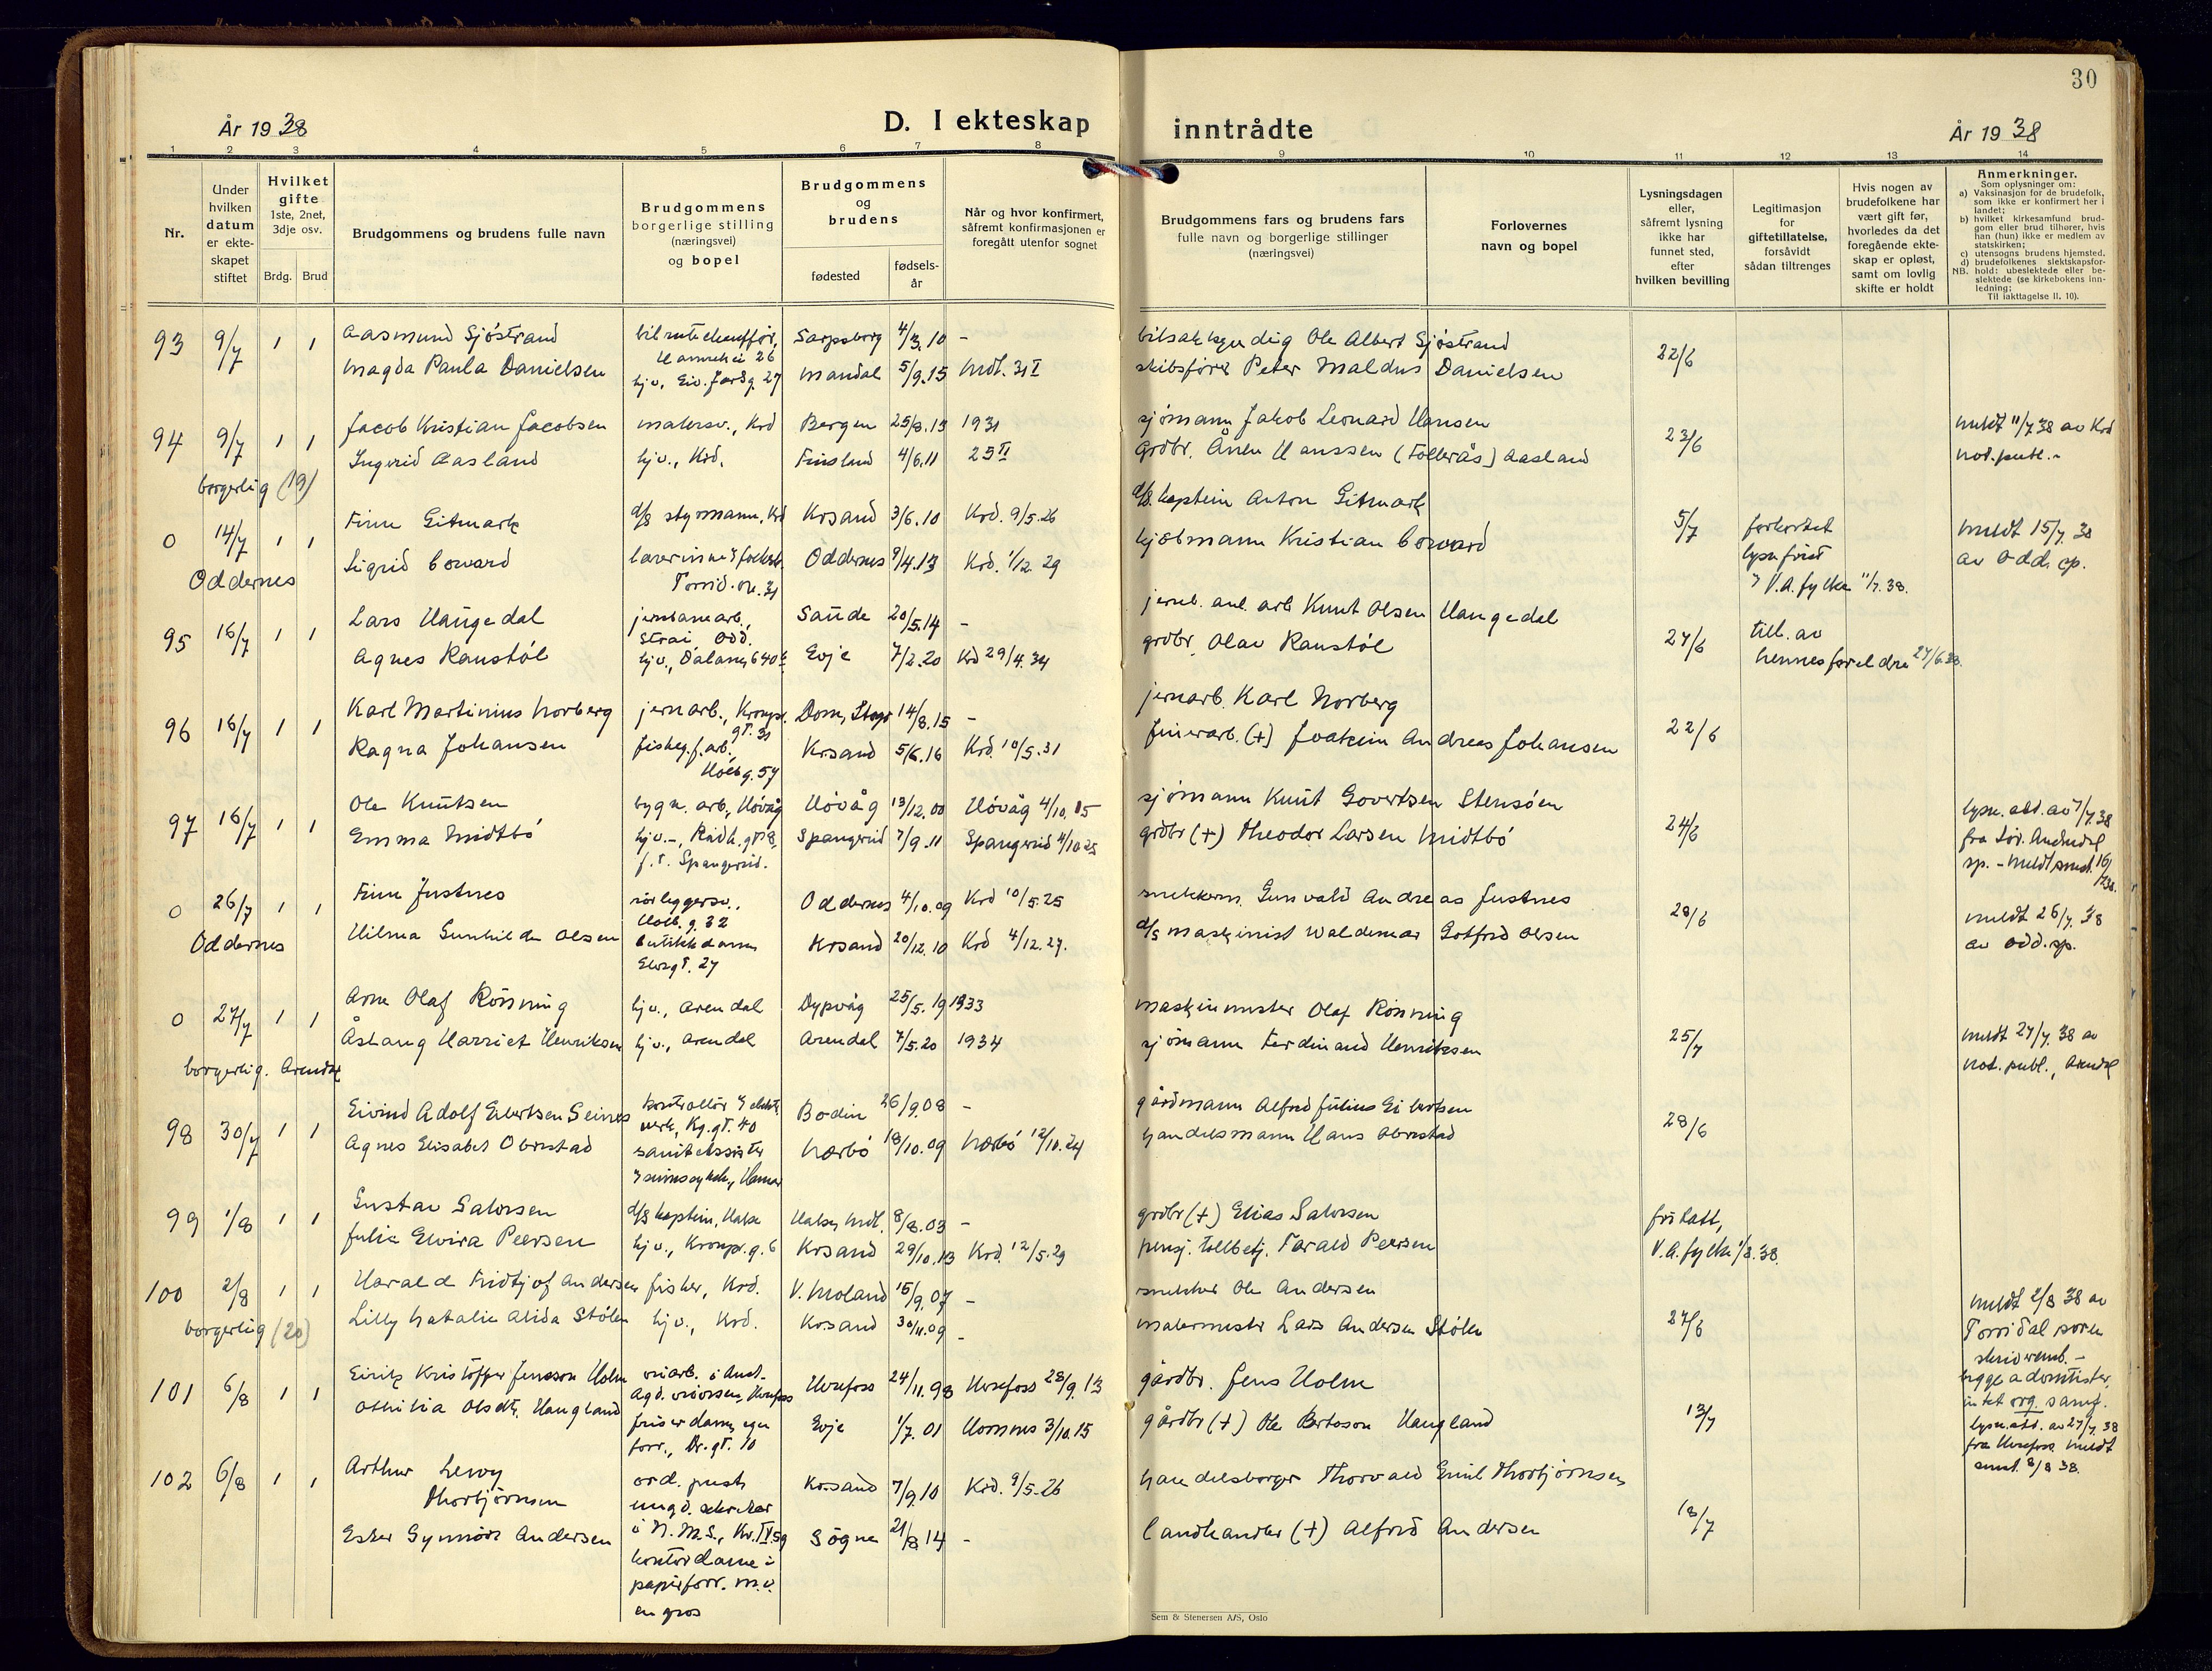 30
År 1938
D. I ekteskap
inntrådte
År 1938
1 2 3 4 5 6 7 8 9 10 11 12 13 14
Nr.
Under
hvilken
datum
er ekte-
skapet
stiftet
Hvilket
gifte
1ste, 2net,
3dje osv.
Brdg. Brud
Brudgommens og brudens fulle navn
Brudgommens
borgerlige stilling
(næringsvei)
og bopel
Brudgommens
og
brudens
fødested
fødsels-
år
Når og hvor konfirmert,
såfremt konfirmasjonen er
foregått utenfor sognet
Brudgommens fars og brudens fars
fulle navn og borgerlige stillinger
(næringsvei)
Forlovernes
navn og bopel
Lysningsdagen
eller,
såfremt lysning
ikke har
funnet sted,
efter
hvilken bevilling
Legitimasjon
for
giftetillatelse,
forsåvidt
sådan tiltrenges
Hvis nogen av
brudefolkene har
vært gift før,
hvorledes da det
foregående ekte-
skap er opløst,
samt om lovlig
skifte er holdt
Anmerkninger.
Som oplysninger om:
a) Vaksinasjon for de brudefolk,
som ikke er konfirmert her i
landet;
b) hvilket kirkesamfund brud-
gom eller brud tilhører, hvis
han (hun) ikke er medlem av
statskirken;
c) utensogns brudens hjemsted.
d) brudefolkenes slektskapsfor-
NB. hold: ubeslektede eller be-
slektede (se kirkebokens inn-
ledning;
Til iakttagelse II, 10).
93 9/7 1 1 Aasmund Sjöstrand Sarpsborg 4/3.10 - Ole Albert Sjöstrand
Magda Paula Danielsen hjv., Mandal 5/9.15 Mdl. 31 I skibsförer Peter Maldus Danielsen 22/6
94 9/7 1 1 Jacob Kristian Jacobsen malersv., Krd Bergen 1931 sjömann Jakob Leonard Hansen 23/6 meldt 11/7 38 av Krd
Ingerid Aasland hjv., Krd. Finsland 4/6.11 25 II grdbr. Hanssen Aasland not. publ. -
borgerlig (19)
0 14/7 1 1 Finn Gitmark d/s styrmann, Krd Krsand 3/6.10 Krd. 9/5.26 d/s. kaptein Anton Gitmark 5/7 forkortet meldt 15/7 38
Sigrid lærerinne Oddernes 9/4.13 Krd. 1/12. 29 kjöbmann Kristian av Odd. sp.
Oddernes V.A. fylke 11/7. 38.
95 16/7 1 1 Lars Haugedal jernbanearb., Saude 20/5.14 - jernb. anl. arb Knut Olsen Haugedal 27/6 till. av
Strai Odd.
Agnes Raustöl hjv., Evje 7/2.20 Krd 29/4.34 grdbr. Olav Raustöl hennes foreldre 27/6 38.
96 16/7 1 1 Karl Martinius Norberg jernarb., Kronpr. 14/8.15 - jernarb. Karl Norberg 22/6
gt. 31
Ragna Johansen Krsand 5/6.16 Krd. 10/5.31 Joakim Andreas Johansen
Holbg. 57
97 16/7 1 1 Ole Knutsen bygn. arb., Hövåg Hövåg 13/12.00 Hövåg 4/10.15 sjömann Knut Govertsen Stensöen 24/6
Emma Midtbö hjv.-, Rådh. gt 8, Spangerid 7/9.11 Spangerid 4/10 25 grdbr (+) Theodor Larsen Midtbö
f. t. Spangerid.
0 26/7 1 1 Finn Justnes rörleggersv., Oddernes 4/10.09 Krd 10/5.25 snekkerm. Gunvald Andreas Justnes 28/6 meldt 26/7 38
Holb. g. 32
Oddernes Hilma Gunhilde Olsen butikkdame Krsand 20/12.10 Krd 4/12.27. d/s maskinist Waldemar Gotfred Olsen av Odd. sp.
Elvegt. 27
0 27/7 1 1 Arne Olaf Rönning hjv., Arendal Dypvåg 25/5.19 1933 maskinmester Olaf Rönning 25/7
Åslaug Harriet Henriksen hjv., Arendal Arendal 7/5.20 1934 sjömann Ferdinand Henriksen meldt 27/7. 38 av
borgerlig. Arendal not. publ., Arendal
98 30/7 1 1 Eivind Adolf Eilertsen Seines kontrollör Bodin 26/9.08 - gårdmann Alfred Julius Eilertsen 28/6
verk, Kg. gt. 40
Agnes Elisabet Obrestad sanitetssöster Nærbö 18/10.09 Nærbö 12/10.24 handelsmann Hans Obrestad
99 1/8 1 1 Gustav Salvesen d/s kaptein, Halse 8/8.03 - grdbr (+) Elias Salvesen fritatt,
Julie Elvira Peersen hjv., Kronpr. g. 6 Krsand 29/10.13 Krd. 12/5.29 pensj. tollbetj. Tarald Peersen V.A. fylke 1/8. 38.
100 2/8 1 1 Harald Fridtjof Andersen fisker, Krd. V. Moland 15/9.07 - snekker Ole Andersen 27/6 meldt 2/8 38 av
borgerlig (20) Lilly Natalie Alida Stölen hjv., Krd. Krsand 30/11.09 - malermester Lars Andersen Stölen Torridal soren
skriveremb. -
101 6/8 1 1 Eirik Kristoffer Jensson Holm Herefoss 24/11.98 Herefoss 28/9.13 gårdbr. Jens Holm 13/7 begge adventister,
intet org. samf.
Othilia Olsdtr. Haugland friserdame, egen Evje 1/7.01 Hornnes 3/10.15 gårdbr (+) Ole Bertsson Haugland lysn. att. av 27/7 38
forr., Dr. gt. 10 fra Herefoss meldt
smst. 8/8 38.
102 6/8 1 1 Arthur Lewy ord. prest, Krsand 7/9.10 Krd. 9/5.26 handelsborger Thorvald Emil Thorbjörnsen 18/7
Thorbjörnsen ungd. sekretær
i N.M.S.,
Ester Gynnöve Andersen kontordame i Søgne 21/8.14 - landhandler (+) Alfred Andersen
papirforr.
en gros
Sem & Stenersen A/S, Oslo